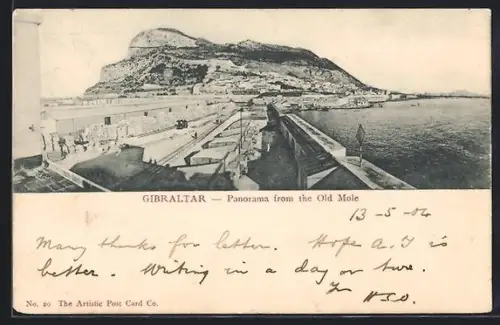 GIBRALTAR — Panorama from the Old Mole
13-5-04
Many thanks for letter. Hope A. J is
better. Writing in a day or two.
No. 20 The Artistic Post Card Co.